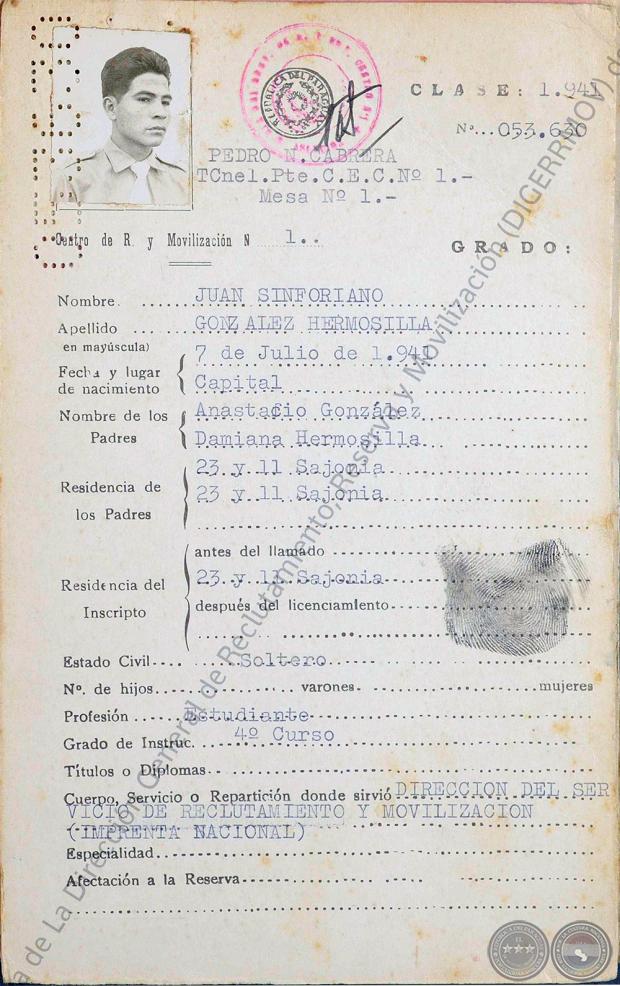 CLASE: 1.941
Nº...053.630
PEDRO N. CABRERA
TCnel.Pte.C.E.C.Nº 1.-
Mesa Nº 1.-
REPUBLICA DEL PARAGUAY
Centro de R. y Movilización N 1..
GRADO:
Nombre. JUAN SINFORIANO
Apellido GONZALEZ HERMOSILLA
en mayúscula)
Fecha y lugar de nacimiento 7 de Julio de 1.941
Capital
Nombre de los Padres Anastacio González
Damiana Hermosilla
Residencia de los Padres 23 y 11 Sajonia
23 y 11 Sajonia
Residencia del Inscripto antes del llamado
23 y 11 Sajonia
después del licenciamiento
Estado Civil Soltero
Nº. de hijos varones mujeres
Profesión Estudiante
Grado de Instruc. 4º Curso
Títulos o Diplomas
Cuerpo, Servicio o Repartición donde sirvió DIRECCION DEL SER
VICIO DE RECLUTAMIENTO Y MOVILIZACION
(IMPRENTA NACIONAL)
Especialidad
Afectación a la Reserva
a de La Dirección General de Reclutamiento, Reserva y Movilización (DIGERRMOV) de